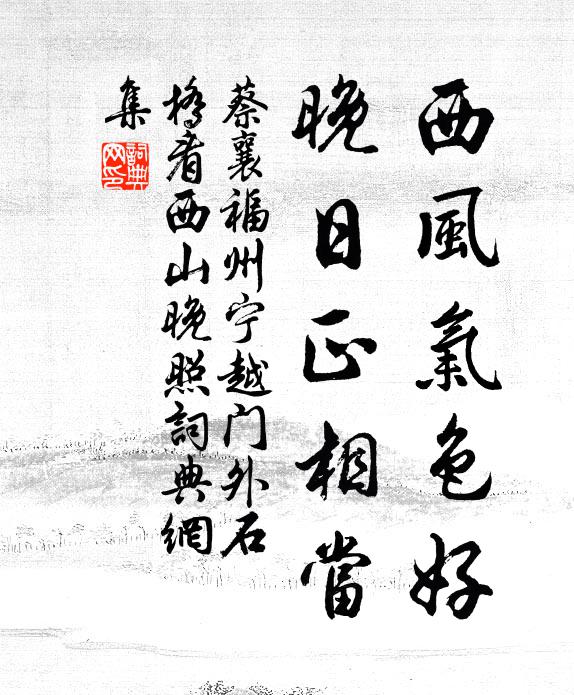 西風氣色好
晚日正相當
蔡襄福州宁越门外石
橋看西山晚照詞典網
集
詞典
网印